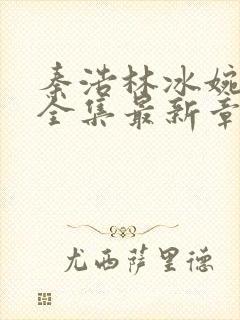 秦浩林冰婉
全集最新章
尤西萨里德